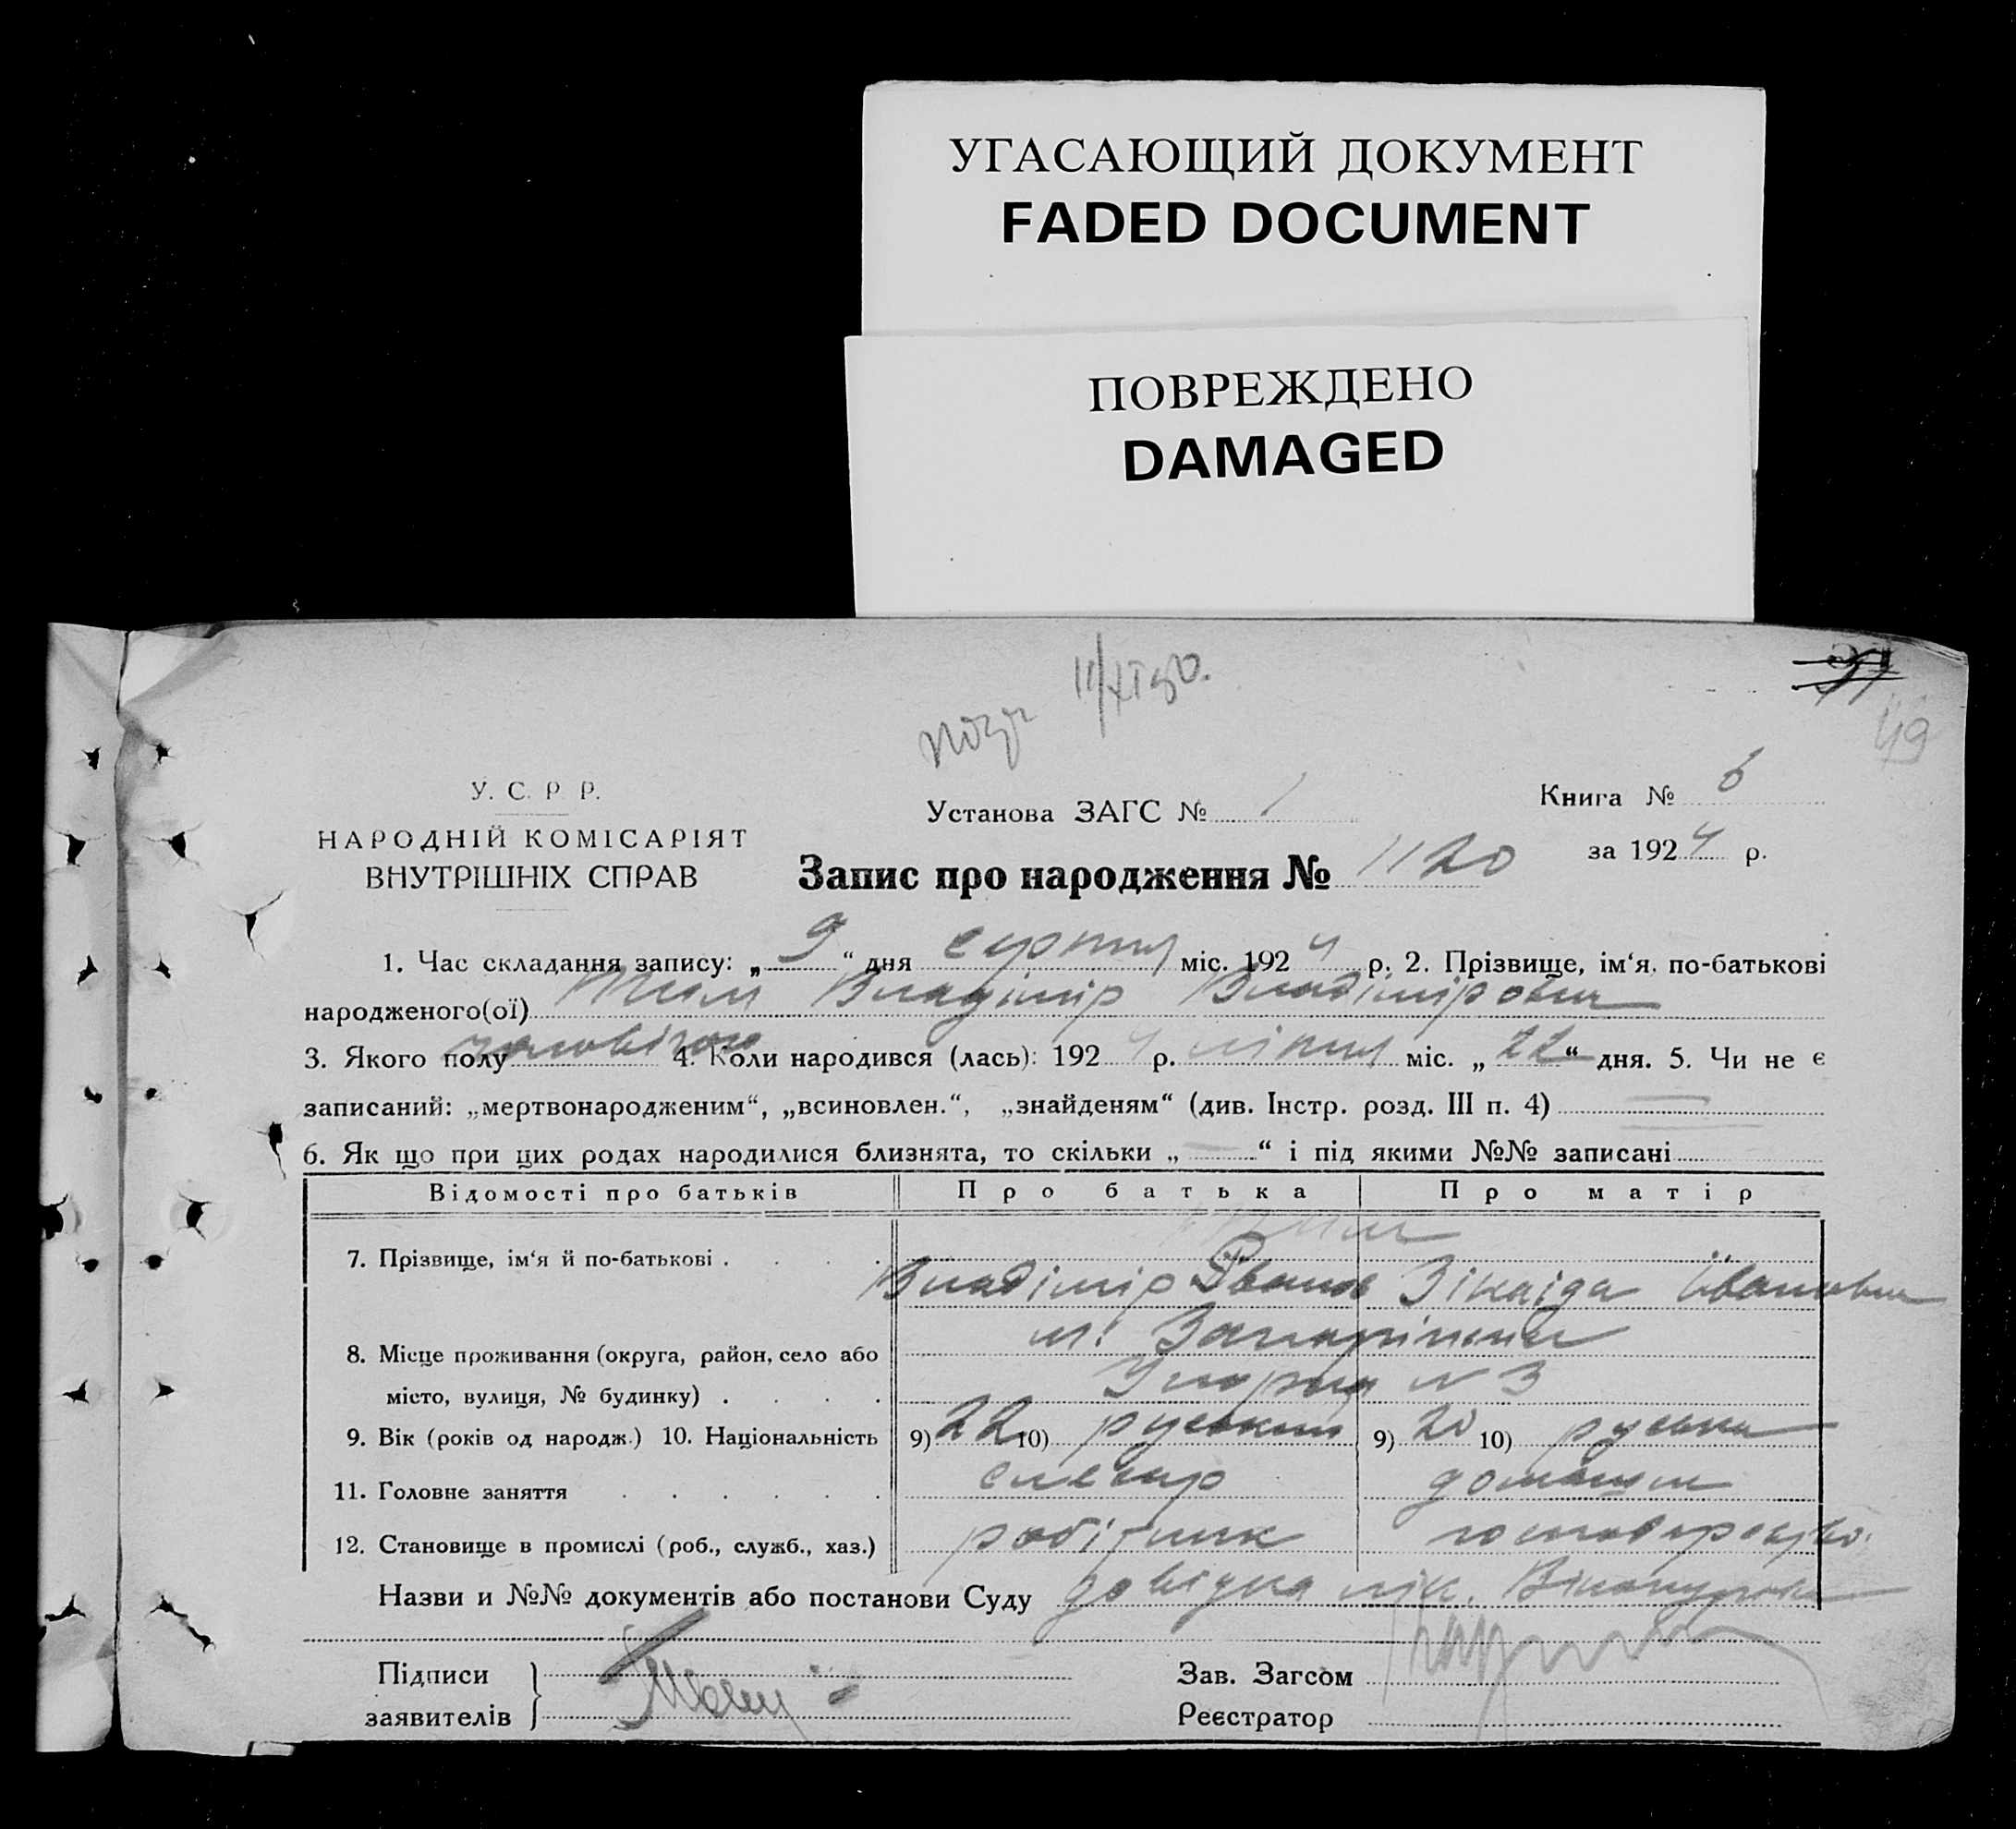 УГАСАЮЩИЙ ДОКУМЕНТ
FADED DOCUMENT
ПОВРЕЖДЕНО
DAMAGED
11/XI 50.
49
У. С. Р. Р.
НАРОДНІЙ КОМІСАРІЯТ
ВНУТРІШНІХ СПРАВ
Установа ЗАГС № 1
Книга № 6
за 1924 р.
Запис про народження № 1120
1. Час складання запису: „9“ дня серпня міс. 1924 р. 2. Прізвище, ім‘я, по-батькові
народженого(ої) Владімір Владімірович
3. Якого полу чоловічого 4. Коли народився (лась): 1924 р. липня міс. „22“ дня. 5. Чи не є
записаний: „мертвонародженим“, „всиновлен.“, „знайденям“ (див. Інстр. розд. III п. 4) —
6. Як що при цих родах народилися близнята, то скільки „—“ і під якими №№ записані
Відомості про батьків Про батька Про матір
7. Прізвище, ім‘я й по-батькові . . . .
Владімір Іванов Зінаїда Івановна
8. Місце проживання (округа, район, село або м. Запоріжжя
місто, вулиця, № будинку) . . . . N 3
9. Вік (років од народж.) 10. Національність 9) 22 10) руський 9) 20 10) руська
11. Головне заняття . . . . . . слесар домашнє
12. Становище в промислі (роб., служб., хаз.) робітник господарство.
Назви и №№ документів або постанови Суду довідка лік. Вінокурова
Підписи
заявителів
Зав. Загсом
Реєстратор